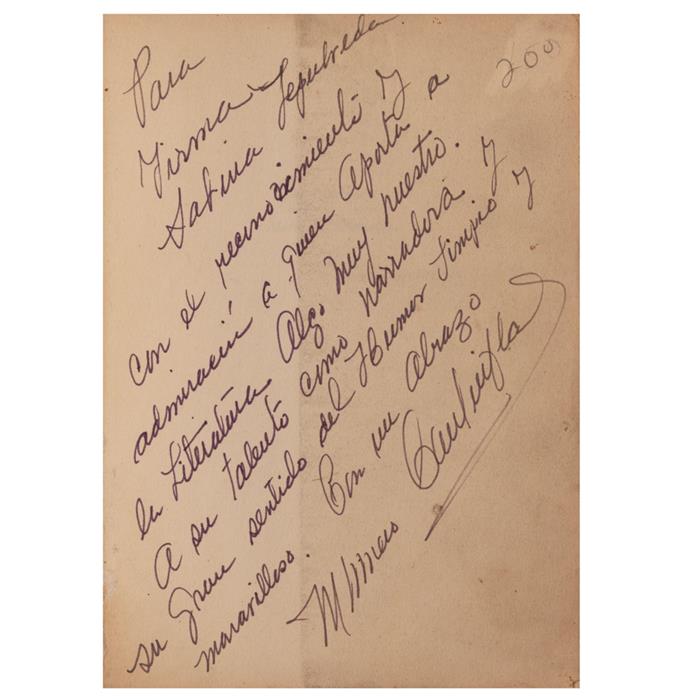 Para
Yirma Sepulveda
Sabina
con el reconocimiento y
admiración a quien aporta a
la Literatura Algo Muy nuestro.
A su talento como narradora y
su gran sentido del Humor limpio y
maravilloso. Con un Abrazo
M Moreno Cantinflas
200